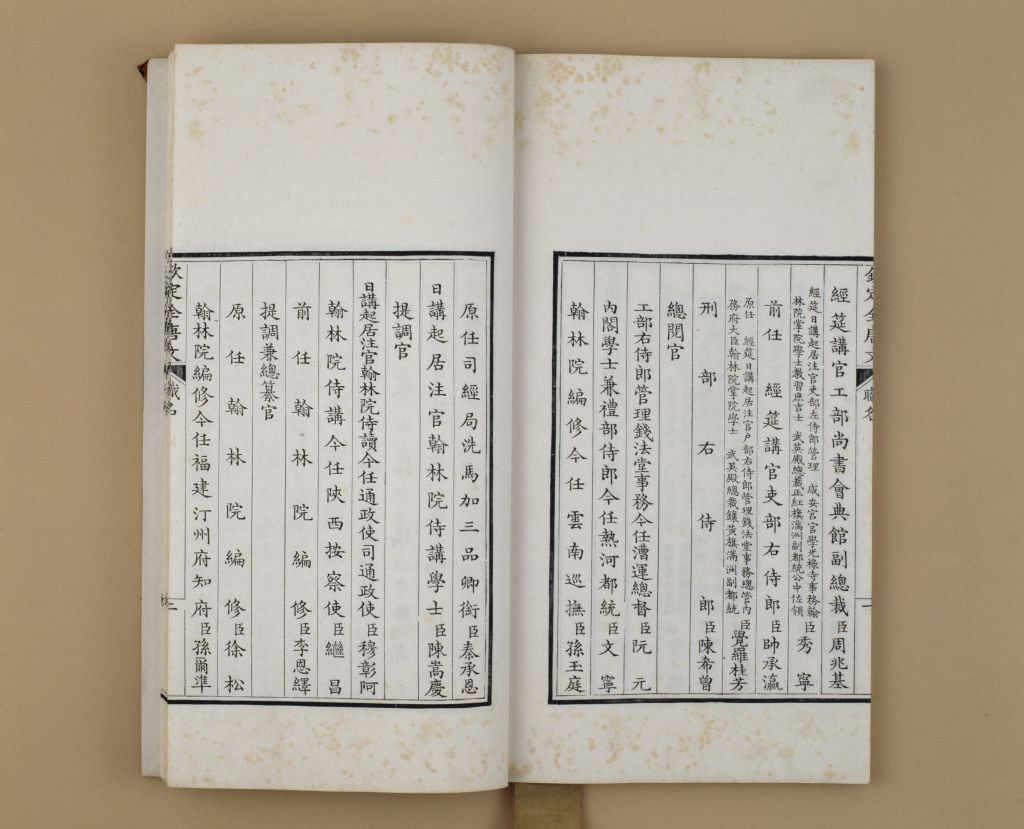 欽定全唐文 職名 一
經筵講官工部尚書會典館副總裁臣周兆基
經筵日講起居注官吏部左侍郎管理 咸安宮官學光祿寺事務翰
林院掌院學士教習庶吉士 武英殿總裁正紅旗滿洲副都統公中佐領臣秀寧
前任 經筵講官吏部右侍郎臣帥承瀛
原任 經筵日講起居注官戶部右侍郎管理錢法堂事務總管內
務府大臣翰林院掌院學士 武英殿總裁鑲黃旗滿洲副都統臣覺羅桂芳
刑部右侍郎臣陳希曾
總閱官
工部右侍郎管理錢法堂事務今任漕運總督臣阮元
內閣學士兼禮部侍郎今任熱河都統臣文寧
翰林院編修今任雲南巡撫臣孫玉庭
原任司經局洗馬加三品卿銜臣秦承恩
日講起居注官翰林院侍講學士臣陳嵩慶
提調官
日講起居注官翰林院侍讀今任通政使司通政使臣穆彰阿
翰林院侍講今任陝西按察使臣繼昌
前任翰林院編修臣李恩繹
提調兼總纂官
原任翰林院編修臣徐松
翰林院編修今任福建汀州府知府臣孫爾準
欽定全唐文 職名 二